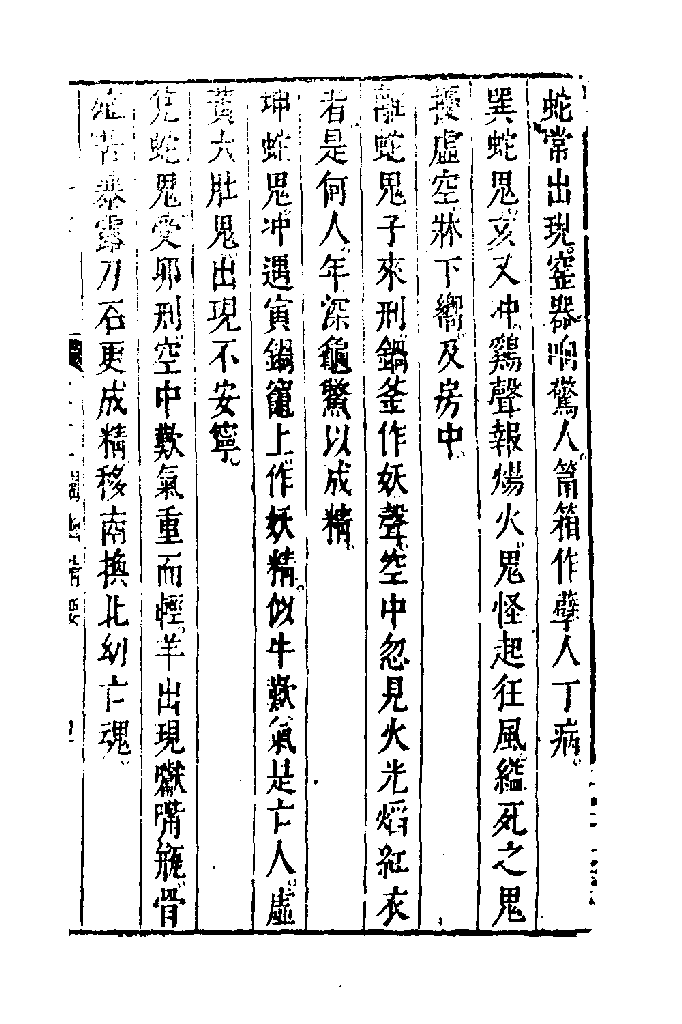 蛇常出現窰器响驚人筩箱作孽人丁病
巽蛇鬼亥又冲鷄聲報煬火鬼怪起狂風縊死之鬼
擾虛空牀下嚮及房中
離蛇鬼子來刑鍋釜作妖聲空中忽見火光熖紅衣
者是何人年深龜鱉以成精
坤蛇鬼冲遇寅鍋竈上作妖精似牛歎氣是亡人虛
黃大肚鬼出現不安寧
兌蛇鬼受卯刑空中歎氣重而輕羊出現獄嘴瓶骨
蛇常暴露刀石更成精移南換北幼亡魂